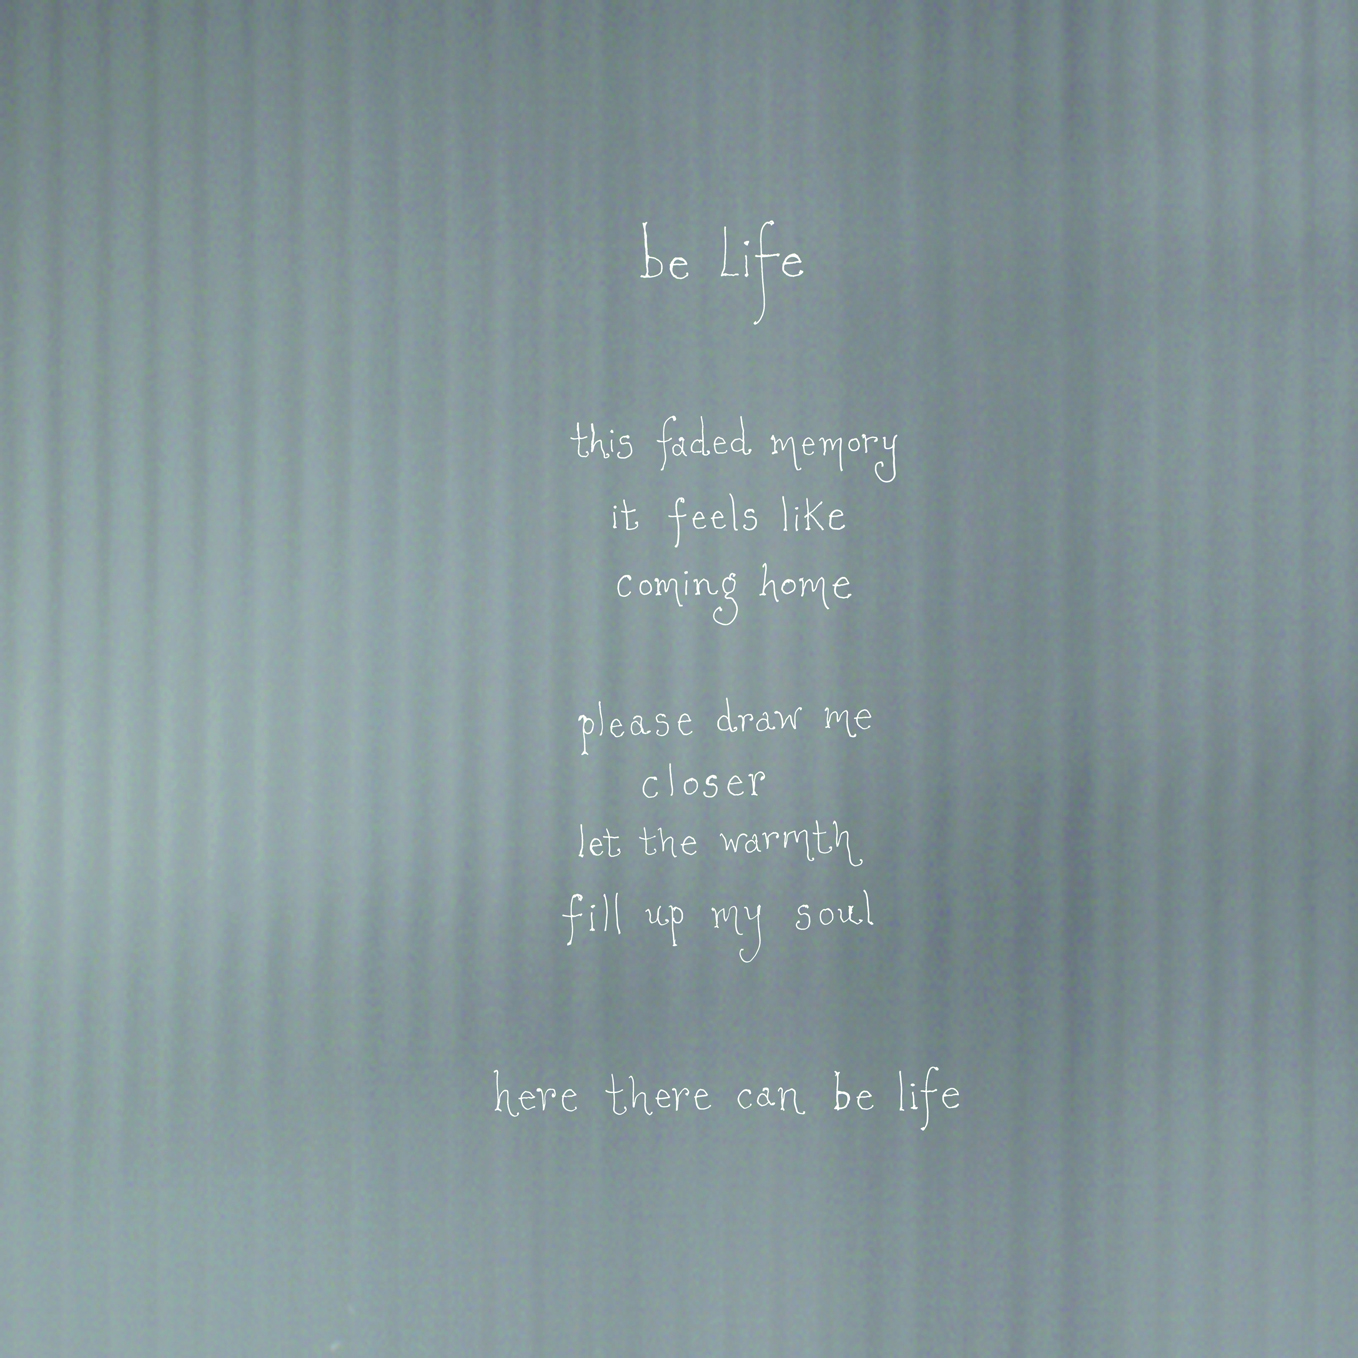 be Life
this faded memory
it feels like
coming home
please draw me
closer
let the warmth
fill up my soul
here there can be life